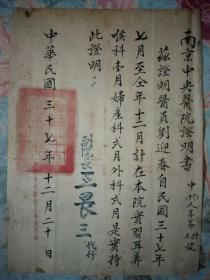 南京中央醫院證明書
茲證明醫員劉迎春自民國三十七年
七月至仝年十二月計在本院實習耳鼻
喉科壹月婦產科弍月外科弍月是實特
此證明
副院長王晏三代行
中華民國三十七年十二月二十日